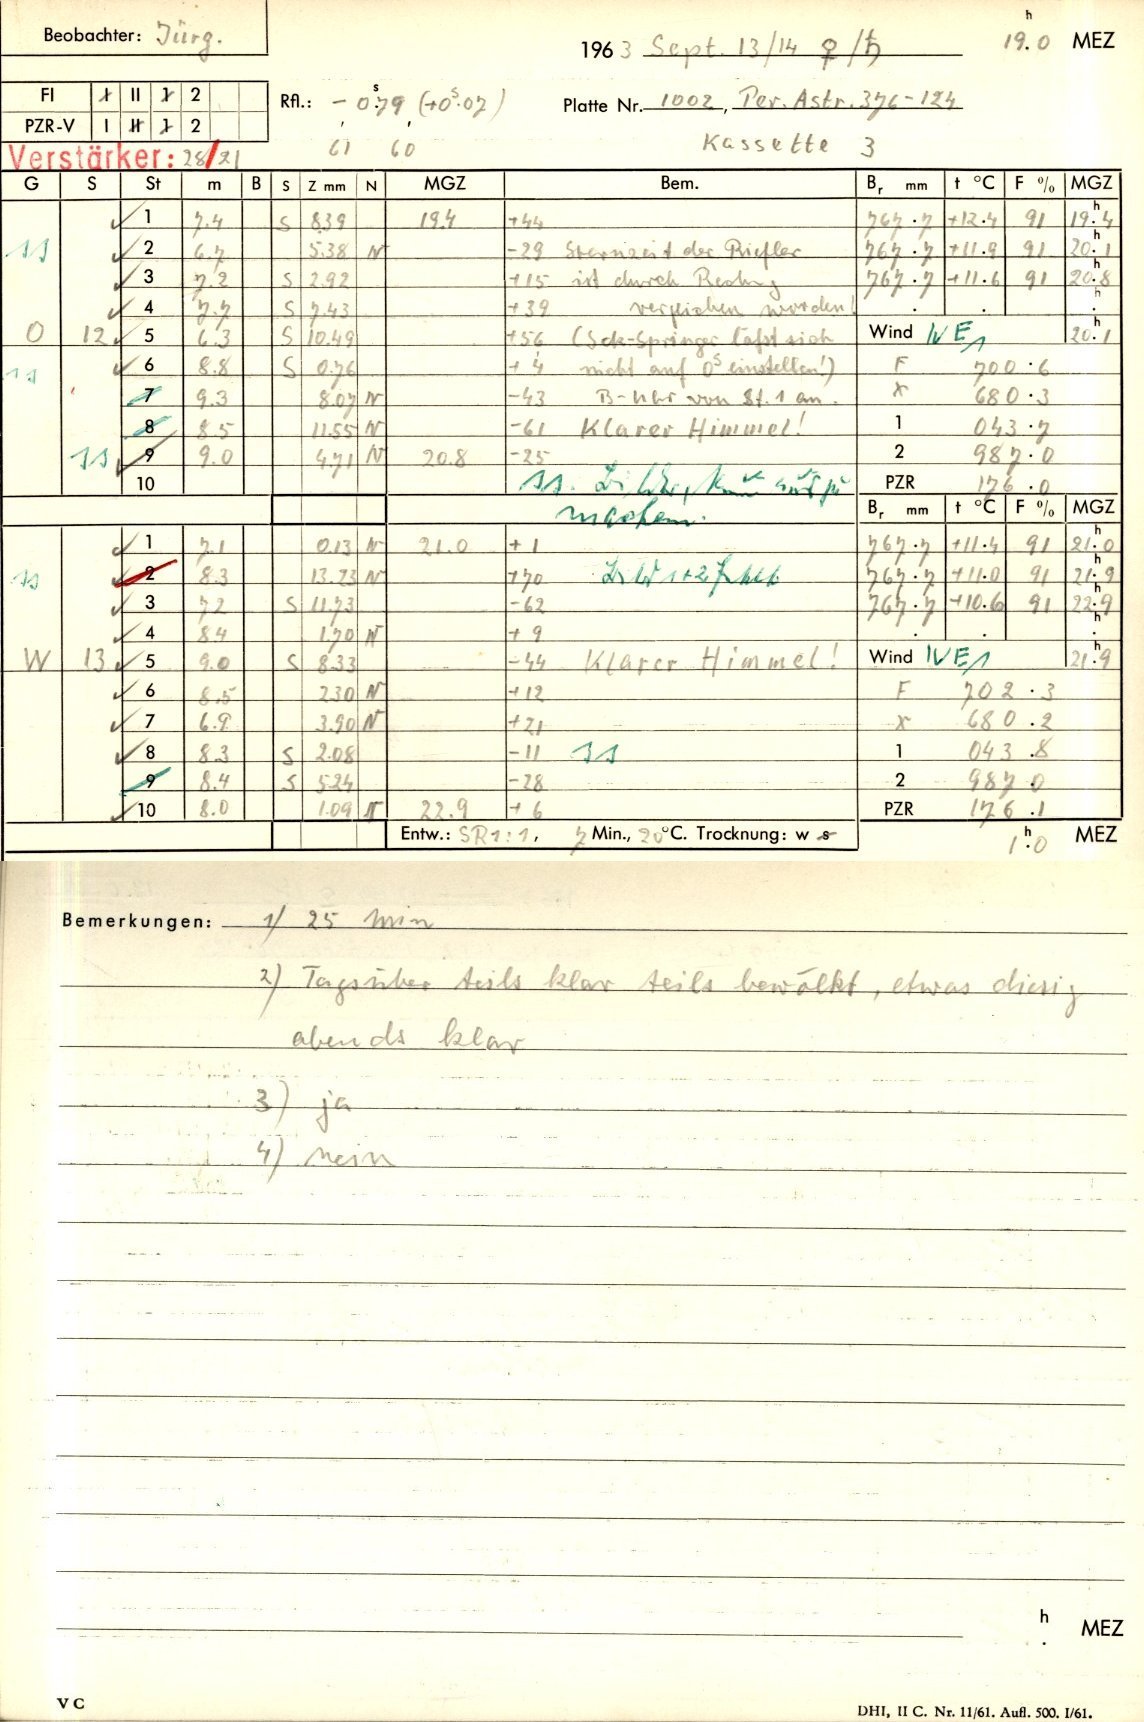 Beobachter: Jürg.
196 3 Sept. 13/14 ♀/♄ 19.0 h MEZ
FI I II 1 2
PZR-V I II 1 2
Rfl.: - 0.s79 (+0.s07)
61 60
Platte Nr. 1002, Per. Astr. 376-124
Kassette 3
Verstärker: 28/21
G S St m B S Z mm N MGZ Bem. Br mm t °C F % MGZ
1 7.4 S 8.39 19.4 +44 767.7 +12.4 91 19.4 h
ss 2 6.7 5.38 N -29 Sternzeit der Riefler 767.7 +11.9 91 20.1 h
3 7.2 S 2.92 +15 ist durch 767.7 +11.6 91 20.8 h
4 7.7 S 7.43 +39 verglichen worden! . . h .
O 12 5 6.3 S 10.49 +56 (Sek-Springer läßt sich Wind NE1 20.1 h
ss 6 8.8 S 0.76 +4 nicht auf 0s einstellen!) F 700.6
7 9.3 8.07 N -43 B-Uhr von St. 1 an. x 680.3
8 8.5 11.55 N -61 Klarer Himmel! 1 043.7
ss 9 9.0 4.71 N 20.8 -25 2 987.0
10 ss. PZR 176.0
machen. Br mm t °C F % MGZ
1 7.1 0.13 N 21.0 +1 767.7 +11.4 91 21.0 h
ss 2 8.3 13.23 N +70 767.7 +11.0 91 21.9 h
3 7.2 S 11.73 -62 767.7 +10.6 91 22.9 h
4 8.4 1.70 N +9 . . h .
W 13 5 9.0 S 8.33 -44 Klarer Himmel! Wind NE1 21.9 h
6 8.5 2.30 N +12 F 702.3
7 6.9 3.90 N +21 x 680.2
8 8.3 S 2.08 -11 ss 1 043.8
9 8.4 S 5.24 -28 2 987.0
10 8.0 1.09 N 22.9 +6 PZR 176.1
Entw.: SR1:1, 7 Min., 20°C. Trocknung: w s 1.0 h MEZ
Bemerkungen: 1) 25 min
2) Tagsüber teils klar teils bewölkt, etwas diesig
abends klar
3) ja
4) nein
h . MEZ
V C
DHI, II C. Nr. 11/61. Aufl. 500. I/61.